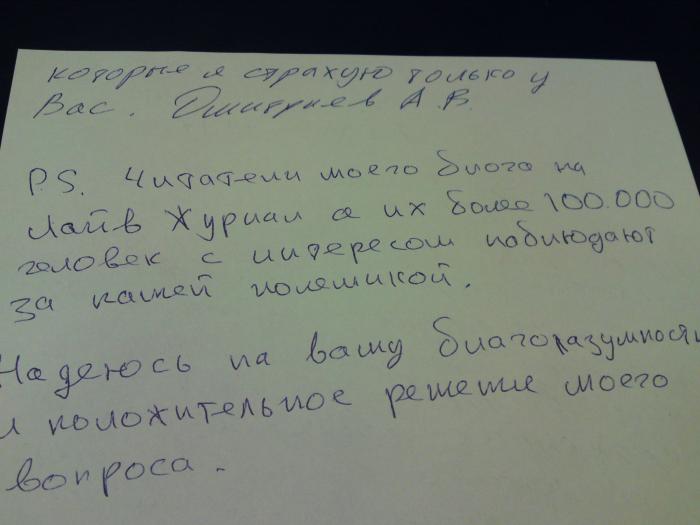 которые я страхую только у
Вас. Дмитриев А.В.
P.S. Читатели моего блога на
Лайв Журнал а их более 100.000
человек с интересом наблюдают
за нашей полемикой.
Надеюсь на вашу благоразумность
и положительное решение моего
вопроса.